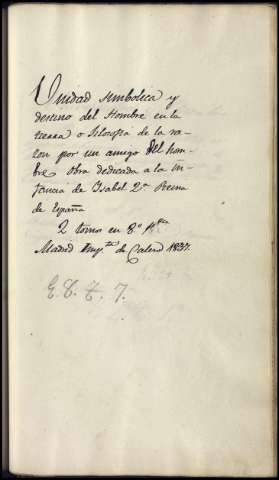 Unidad simbolica y
destino del Hombre en la
tierra o filosofia de la ra-
zon por un amigo del hom-
bre obra dedicada a la in-
fancia de Isabel 2ª Reina
de España
2 tomos en 8º
Madrid Impta de Calero 1837.
E. 8. t. 7.